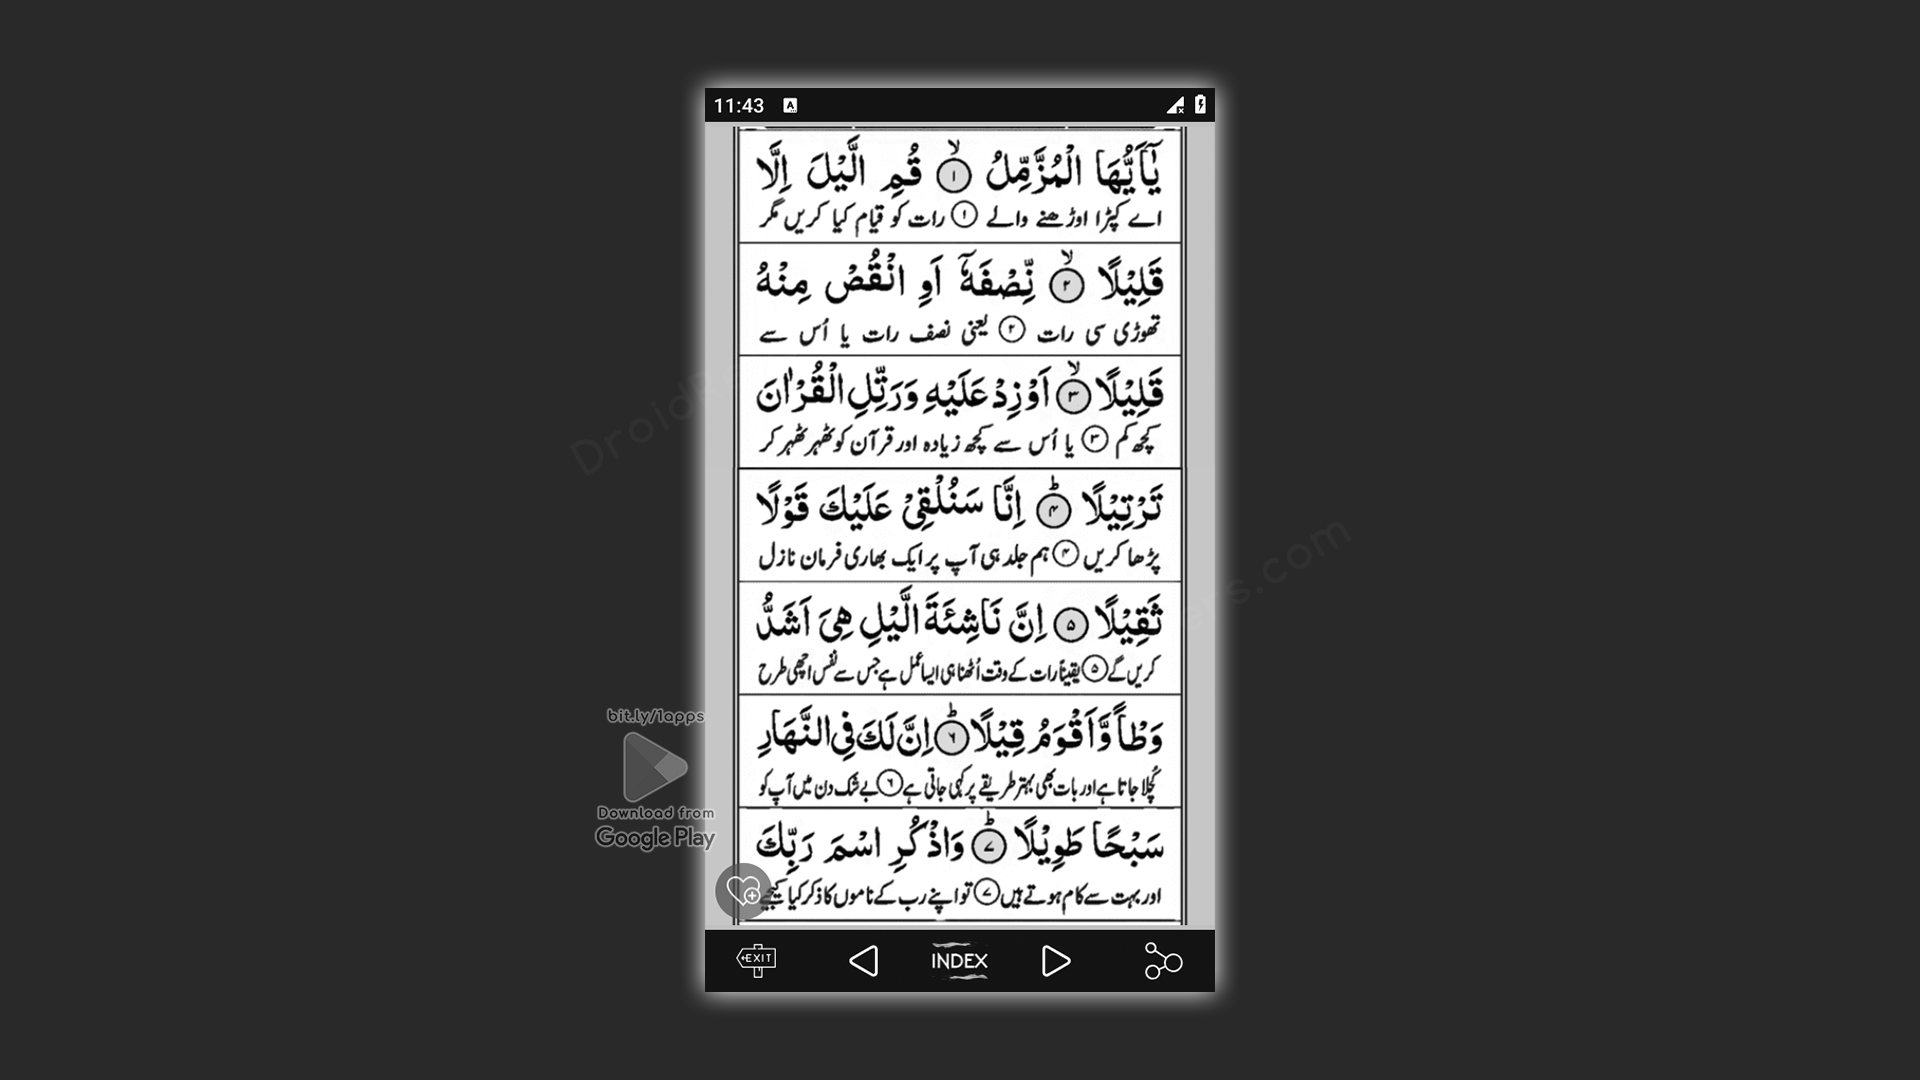 11:43
يٰۤاَيُّهَا الْمُزَّمِّلُ ۙ ١ قُمِ الَّيْلَ اِلَّا
اے کپڑا اوڑھنے والے ١ رات کو قیام کیا کریں مگر
قَلِيْلًا ۙ ٢ نِّصْفَهٗۤ اَوِ انْقُصْ مِنْهُ
تھوڑی سی رات ٢ یعنی نصف رات یا اُس سے
قَلِيْلًا ۙ ٣ اَوْ زِدْ عَلَيْهِ وَرَتِّلِ الْقُرْاٰنَ
کچھ کم ٣ یا اُس سے کچھ زیادہ اور قرآن کو ٹھہر ٹھہر کر
تَرْتِيْلًا ؕ ۴ اِنَّا سَنُلْقِيْ عَلَيْكَ قَوْلًا
پڑھا کریں ۴ ہم جلد ہی آپ پر ایک بھاری فرمان نازل
ثَقِيْلًا ۵ اِنَّ نَاشِئَةَ الَّيْلِ هِيَ اَشَدُّ
کریں گے ۵ یقیناً رات کے وقت اُٹھنا ہی ایسا عمل ہے جس سے نفس اچھی طرح
وَطْاً وَّاَقْوَمُ قِيْلًا ؕ ٦ اِنَّ لَكَ فِي النَّهَارِ
کُچلا جاتا ہے اور بات بھی بہتر طریقے پر کہی جاتی ہے ٦ بے شک دن میں آپ کو
سَبْحًا طَوِيْلًا ؕ ۷ وَاذْكُرِ اسْمَ رَبِّكَ
اور بہت سے کام ہوتے ہیں ۷ تو اپنے رب کے ناموں کا ذکر کیا کیجیے
bit.ly/1apps
Download from
Google Play
EXIT
INDEX